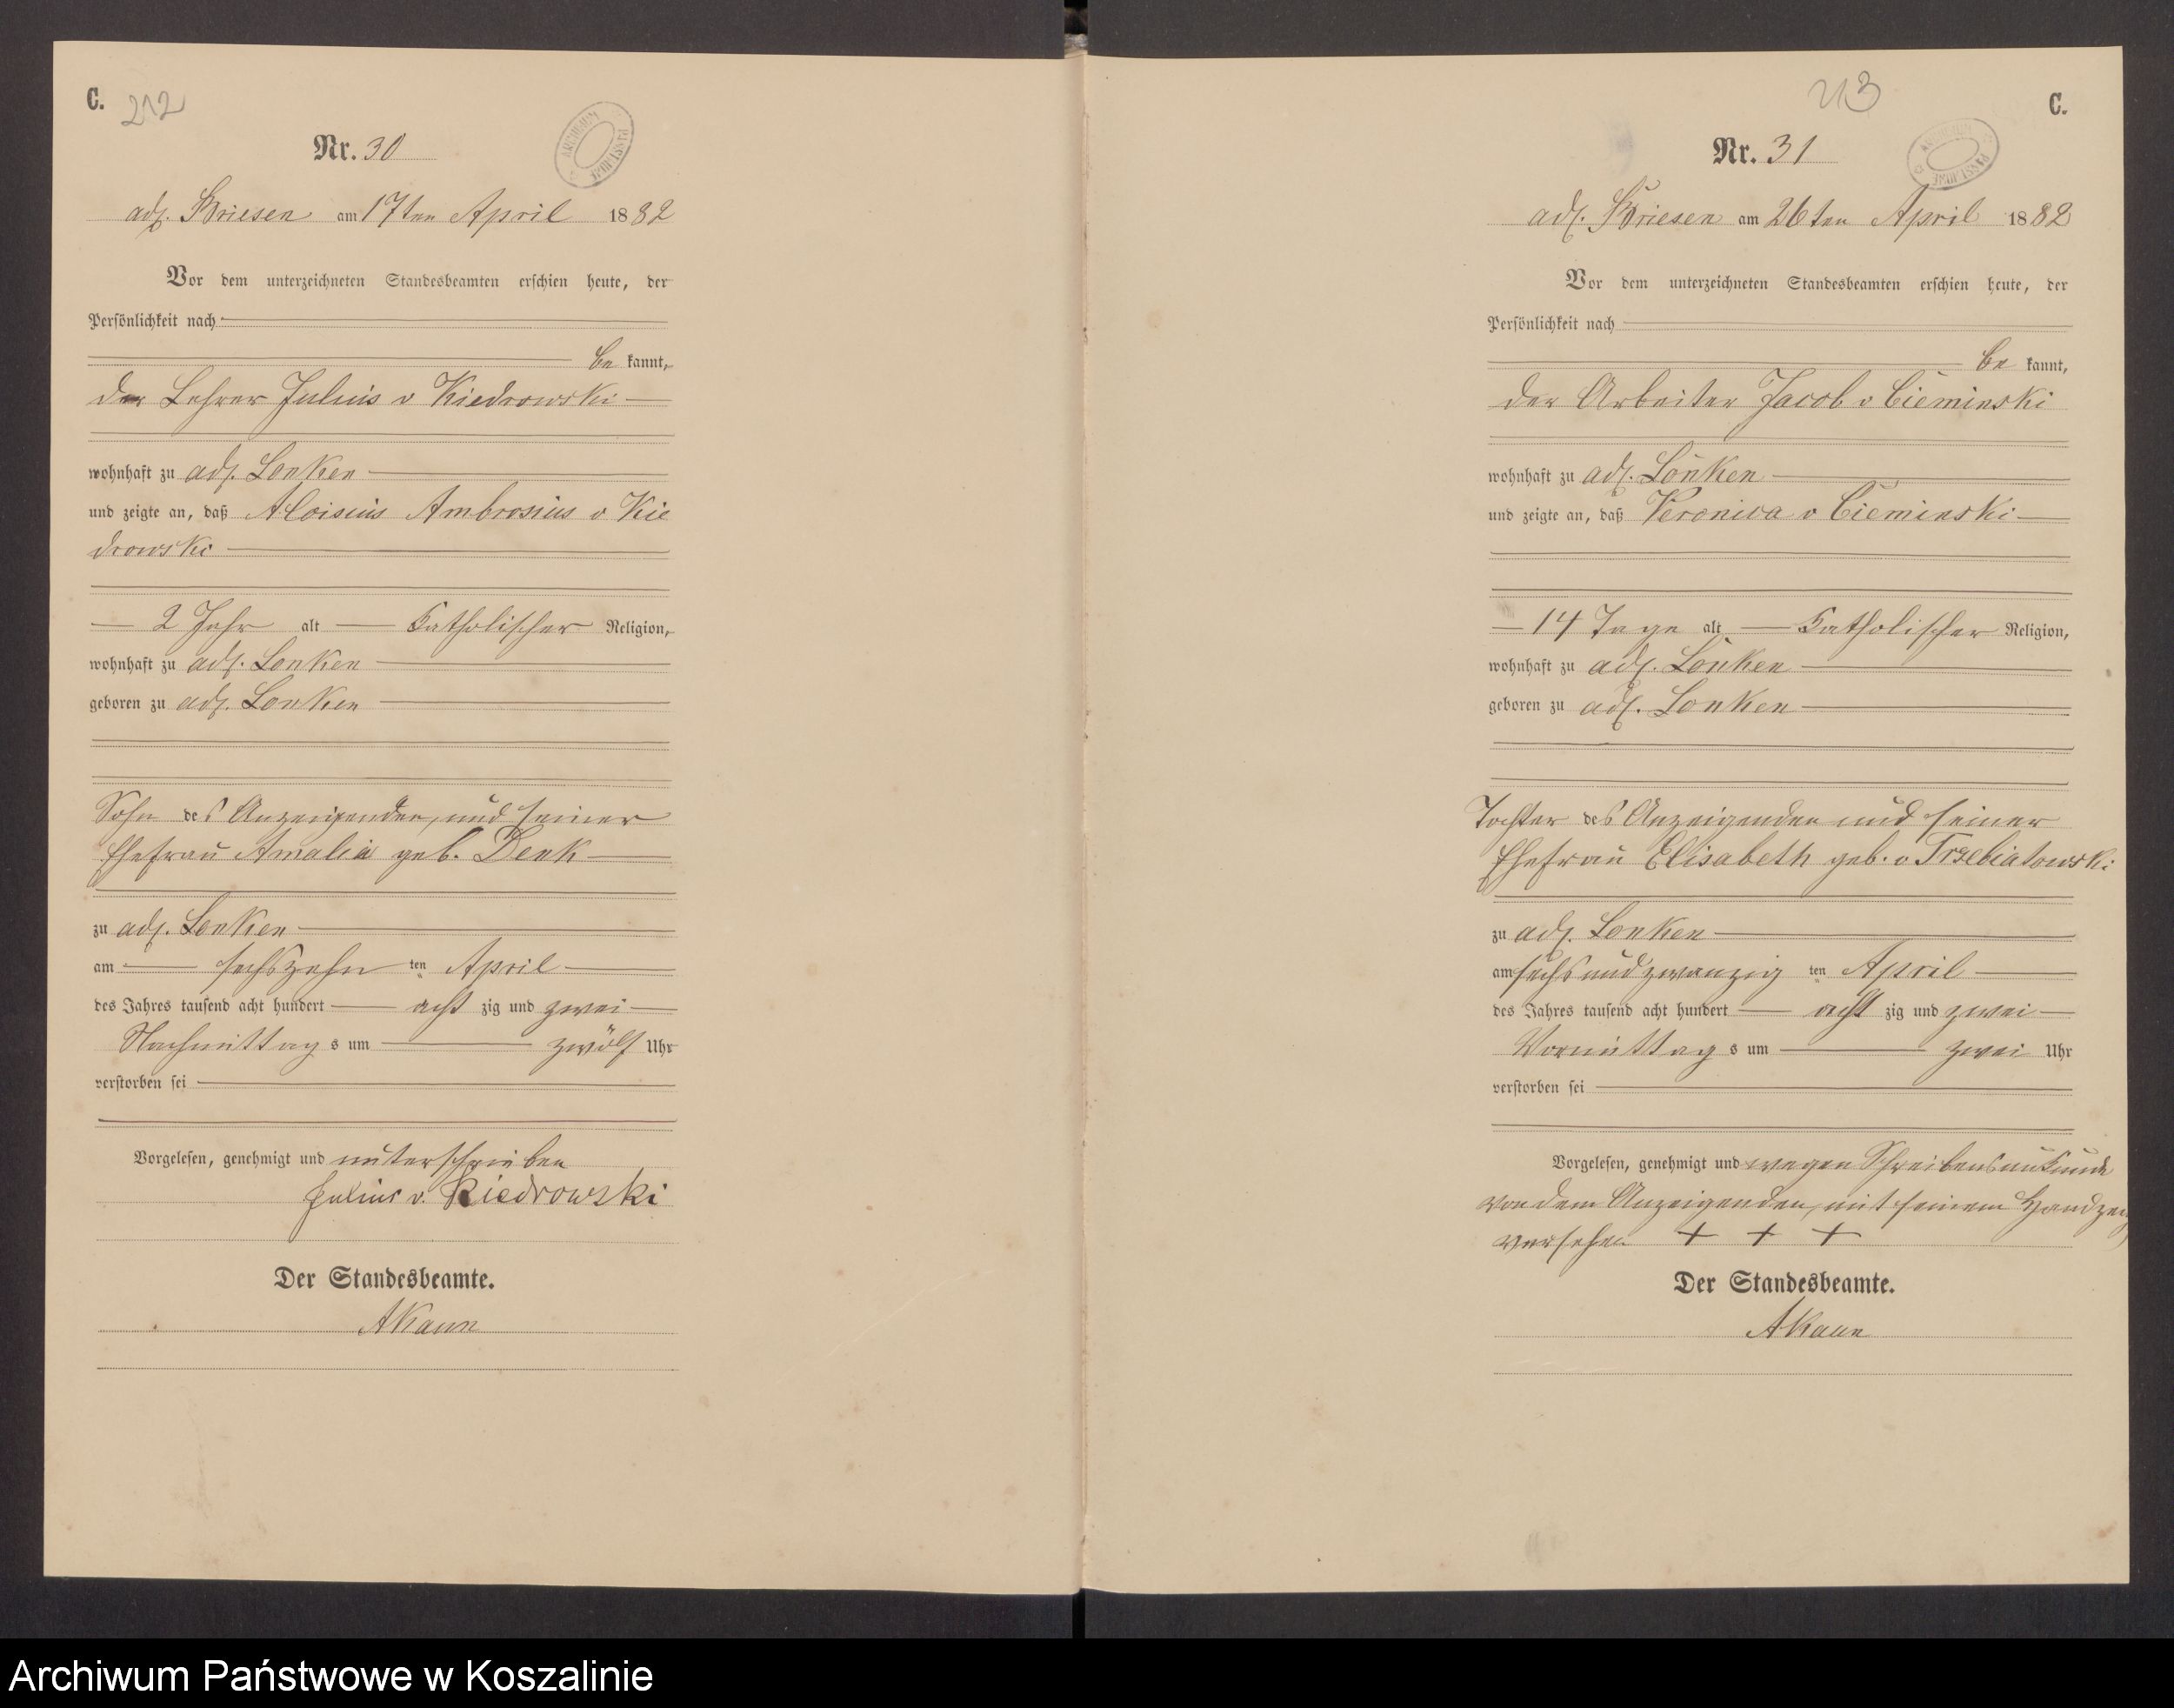 C. 212
ARCHIWUM PAŃSTWOWE
Nr. 30
adl. Briesen am 17ten April 1882
Vor dem unterzeichneten Standesbeamten erschien heute, der
Persönlichkeit nach
be kannt,
der Lehrer Julius v Kiedrowski
wohnhaft zu adl. Lonken
und zeigte an, daß Aloisius Ambrosius v Kie
drowski
2 Jahr alt Katholischer Religion,
wohnhaft zu adl. Lonken
geboren zu adl. Lonken
Sohn des Anzeigenden, und seiner
Ehefrau Amalia geb. Denk
zu adl. Lonken
am sechszehn ten April
des Jahres tausend acht hundert acht zig und zwei
Nachmittag s um zwölf Uhr
verstorben sei
Vorgelesen, genehmigt und unterschrieben
Julius v. Kiedrowski
Der Standesbeamte.
AKaun
213 C.
ARCHIWUM PAŃSTWOWE
Nr. 31
adl. Briesen am 26ten April 1882
Vor dem unterzeichneten Standesbeamten erschien heute, der
Persönlichkeit nach
be kannt,
der Arbeiter Jacob v Cieminski
wohnhaft zu adl. Lonken
und zeigte an, daß Veronica v Cieminski
14 Tage alt Katholischer Religion,
wohnhaft zu adl. Lonken
geboren zu adl. Lonken
Tochter des Anzeigenden und seiner
Ehefrau Elisabeth geb. v Trzebiatowski
zu adl. Lonken
am sechs und zwanzig ten April
des Jahres tausend acht hundert acht zig und zwei
Vormittag s um zwei Uhr
verstorben sei
Vorgelesen, genehmigt und wegen Schreibensunkunde
von dem Anzeigenden, mit seinem Handzeig
versehen + + +
Der Standesbeamte.
AKaun
Archiwum Państwowe w Koszalinie